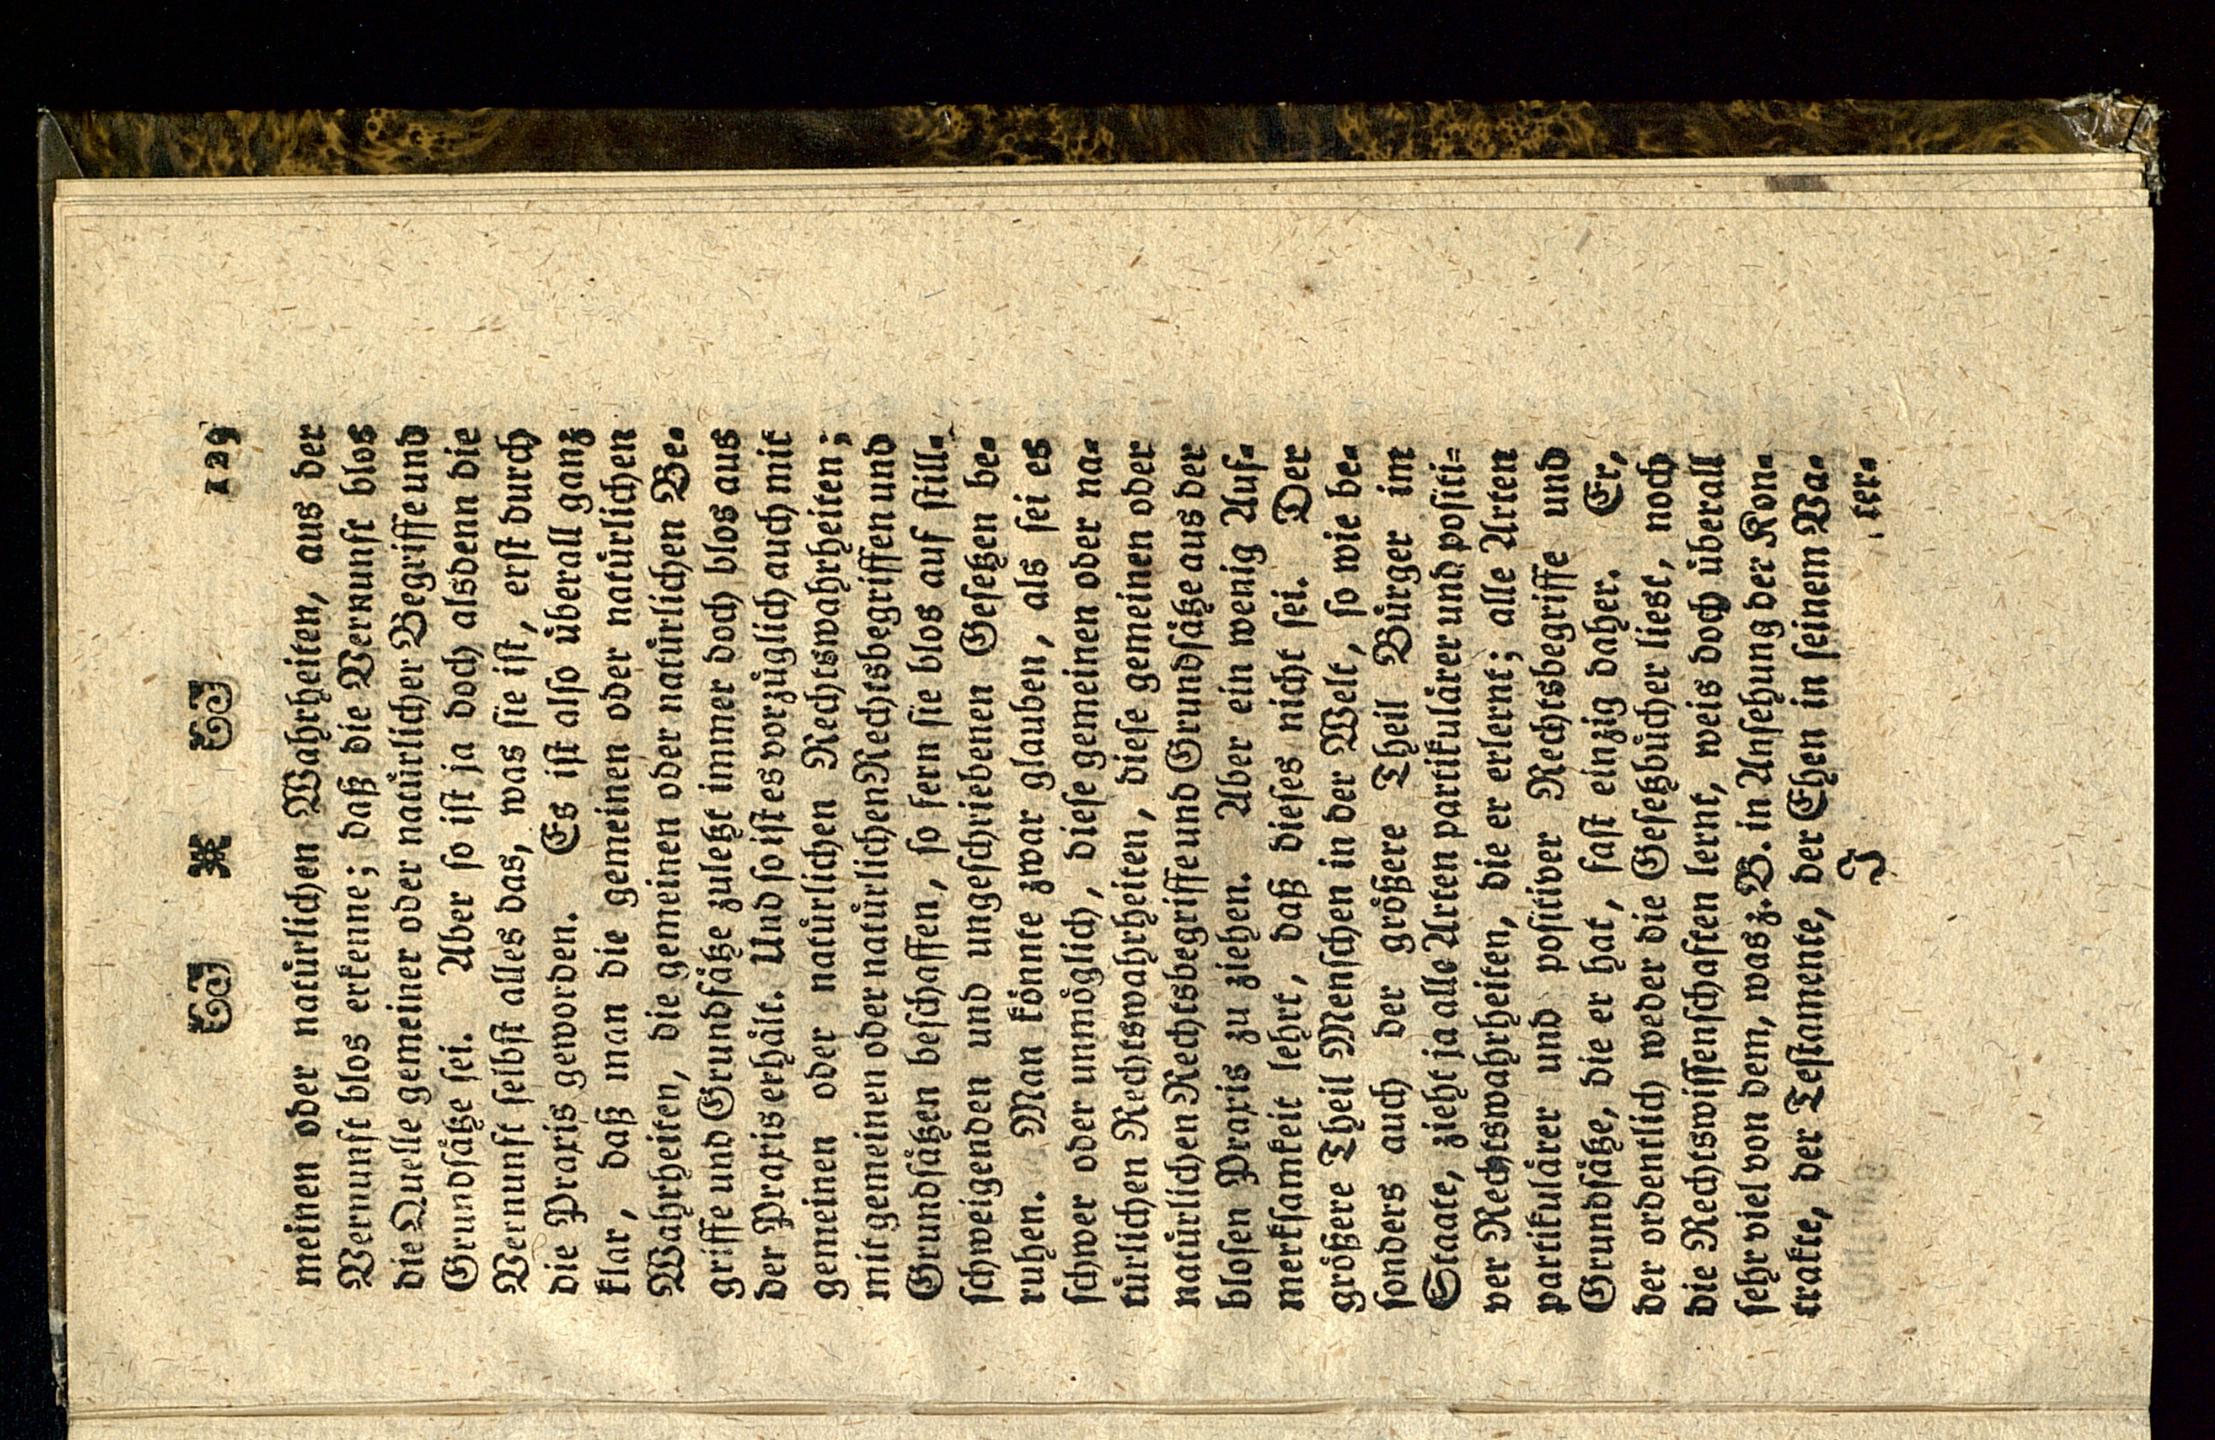 129
meinen oder natürlichen Wahrheiten, aus der
Vernunft blos erkenne; daß die Vernunft blos
die Quelle gemeiner oder natürlicher Begriffe und
Grundsätze sei. Aber so ist ja doch alsdenn die
Vernunft selbst alles das, was sie ist, erst durch
die Praxis geworden. Es ist also überall ganz
klar, daß man die gemeinen oder natürlichen
Wahrheiten, die gemeinen oder natürlichen Be-
griffe und Grundsätze zuletzt immer doch blos aus
der Praxis erhält. Und so ist es vorzüglich auch mit
gemeinen oder natürlichen Rechtswahrheiten;
mit gemeinen oder natürlichen Rechtsbegriffen und
Grundsätzen beschaffen, so fern sie blos auf still-
schweigenden und ungeschriebenen Gesetzen be-
ruhen. Man könnte zwar glauben, als sei es
schwer oder unmöglich, diese gemeinen oder na-
türlichen Rechtswahrheiten, diese gemeinen oder
natürlichen Rechtsbegriffe und Grundsätze aus der
blosen Praxis zu ziehen. Aber ein wenig Auf-
merksamkeit lehrt, daß dieses nicht sei. Der
größere Theil Menschen in der Welt, so wie be-
sonders auch der größere Theil Bürger im
Staate, zieht ja alle Arten partikulärer und positi-
ver Rechtswahrheiten, die er erlernt; alle Arten
partikulärer und positiver Rechtsbegriffe und
Grundsätze, die er hat, fast einzig daher. Er,
der ordentlich weder die Gesetzbücher liest, noch
die Rechtswissenschaften lernt, weis doch überall
sehr viel von dem, was z. B. in Ansehung der Kon-
trakte, der Testamente, der Ehen in seinem Va-
J ter-